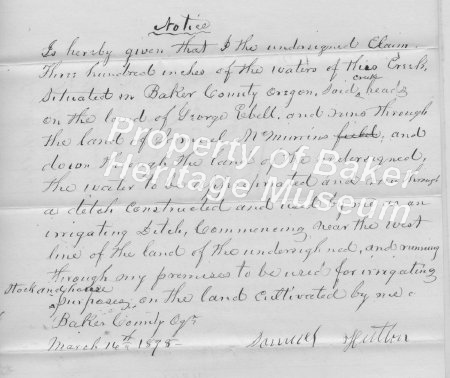 Notice
Is hereby given that I the undersigned Claim.
Three hundred inches of the waters of this Creek.
Situated in Baker County Oregon, Said creek heads
on the land of George Ebell, and runs through
the land of McMurrins field, and
down through the land of the undersigned,
the water to be appropriated and run through
a ditch constructed and used by me as an
irrigating Ditch, Commencing near the west
line of the land of the undersighned, and running
through my premises to be used for irrigating
Stock and house
purposes, on the land cultivated by me.
Baker County Ogn
March 14th 1878
Samuel Hutton
Property of Baker
Heritage Museum